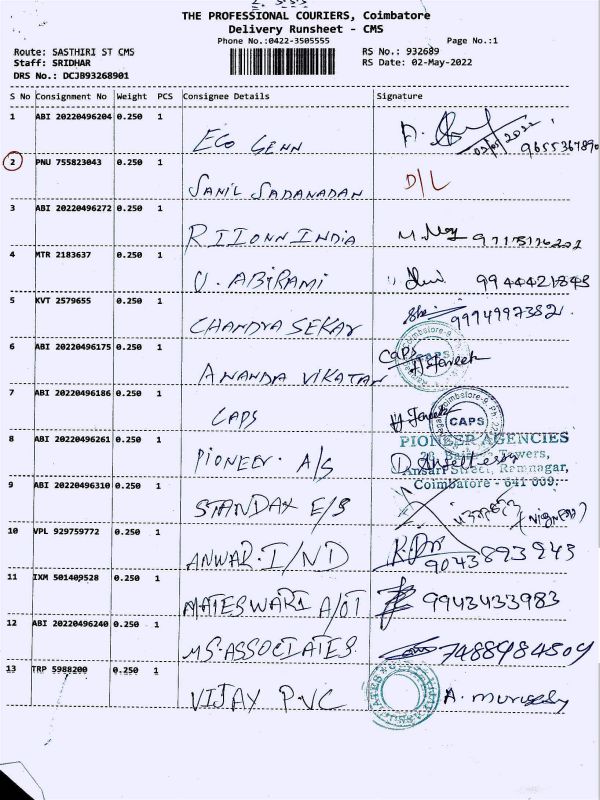 THE PROFESSIONAL COURIERS, Coimbatore
Delivery Runsheet - CMS
Phone No.:0422-3505555 Page No.:1
Route: SASTHIRI ST CMS RS No.: 932689
Staff: SRIDHAR RS Date: 02-May-2022
DRS No.: DCJB93268901
S No Consignment No Weight PCS Consignee Details Signature
1 ABI 20220496204 0.250 1
ECO GENN 02/05/2022 9655367890
2 PNU 755823043 0.250 1
SANIL SADANADAN D/L
3 ABI 20220496272 0.250 1
RIIONN INDIA
4 MTR 2183637 0.250 1
U. ABIRAMI 9944421843
5 KVT 2579655 0.250 1
CHANDRA SEKAR
6 ABI 20220496175 0.250 1
CAPS
CAPS
ANANDA VIKATAN
7 ABI 20220496186 0.250 1
CAPS CAPS
8 ABI 20220496261 0.250 1
PIONEER AGENCIES
PIONEER A/S Towers,
Ansari Street, Ramnagar,
9 ABI 20220496310 0.250 1 Coimbatore - 641 009.
STANDAX E/S
10 VPL 929759772 0.250 1
ANWAR. I/ND 9043893943
11 IXM 501409528 0.250 1
MATESWARI A/OT 9943433983
12 ABI 20220496240 0.250 1
MS. ASSOCIATES 7488984509
13 TRP 5988200 0.250 1
VIJAY PVC